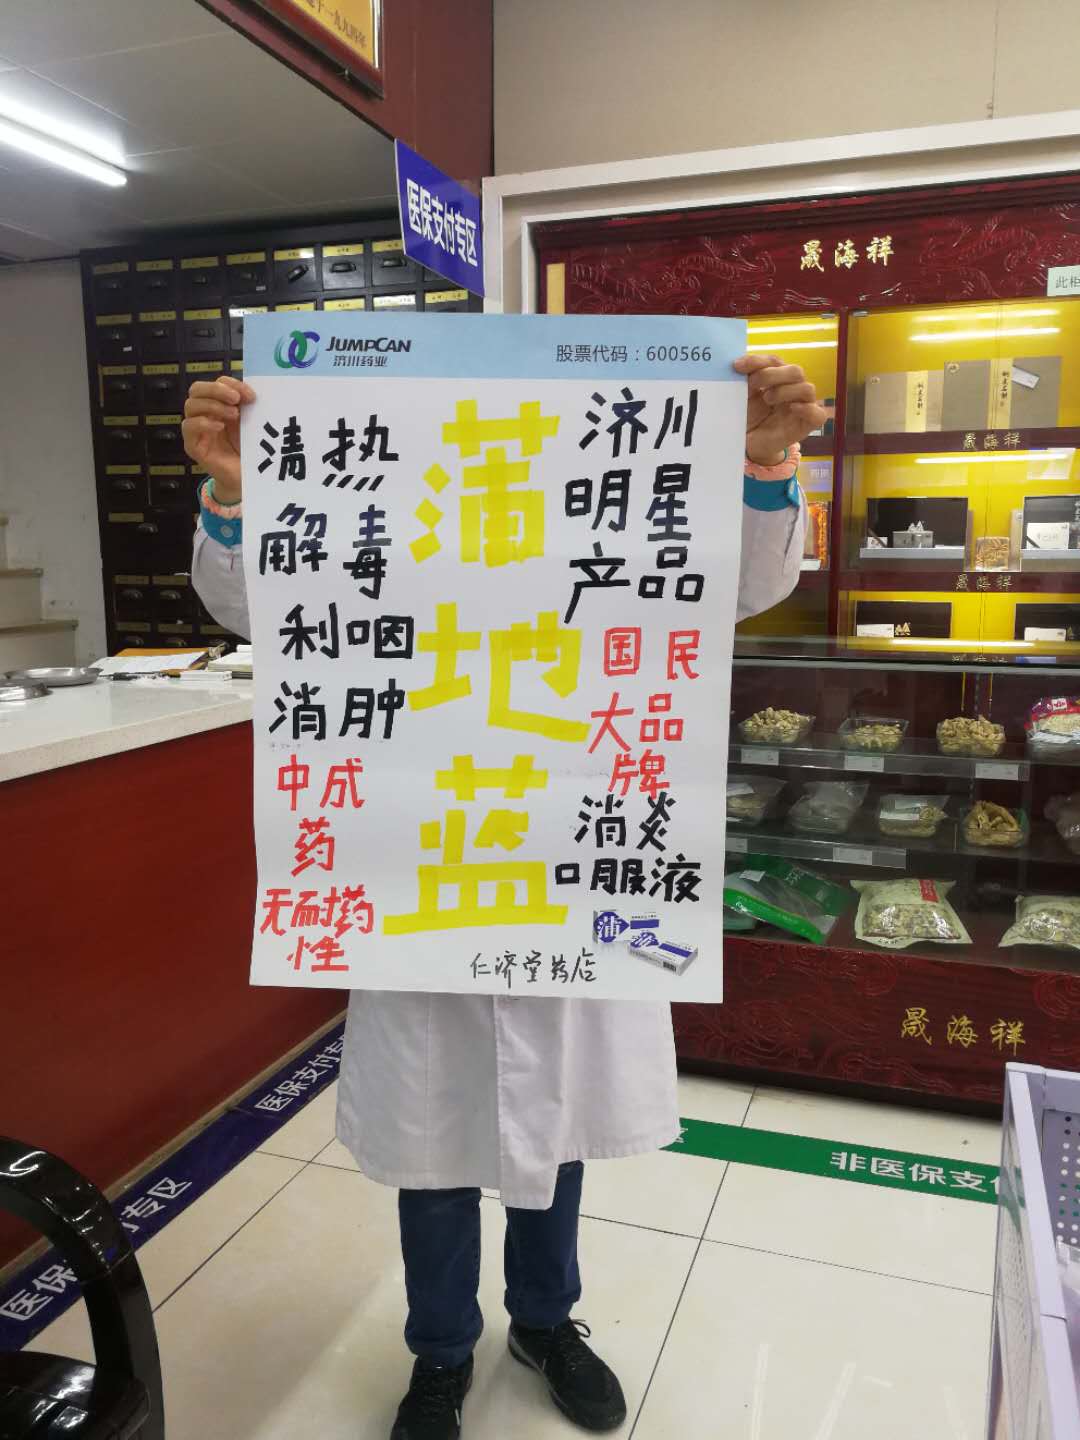 一九九四年
医保支付专区
晟海祥
此柜
JUMPCAN
济川药业
股票代码：600566
清热
解毒
利咽
消肿
中成
药
无耐药
性
蒲
地
蓝
济川
明星
产品
国民
大品
牌
消炎
口服液
蒲
仁济堂药店
晟海祥
晟海祥
晟海祥
医保支付专
专区
医保
非医保支付